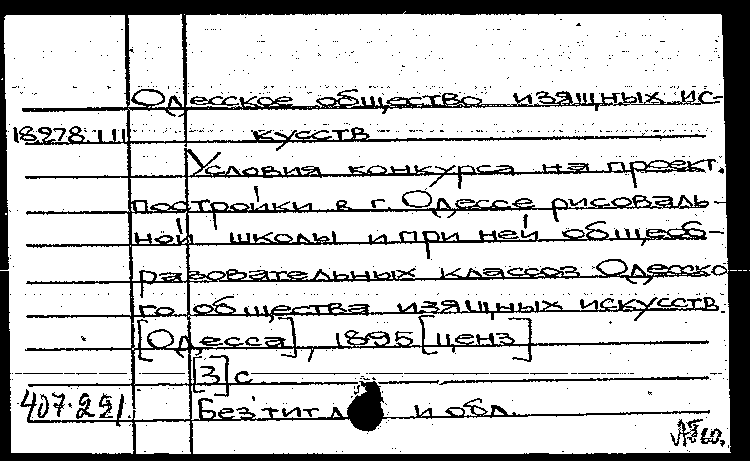 Одесское общество изящных ис-
18278.I.11 кусств
Условия конкурса на проект
постройки в г. Одессе рисоваль-
ной школы и при ней общеоб-
разовательных классов Одесско
го общества изящных искусств.
[Одесса], 1895 [ценз]
[3] с
407.221 Без тит л и обл.